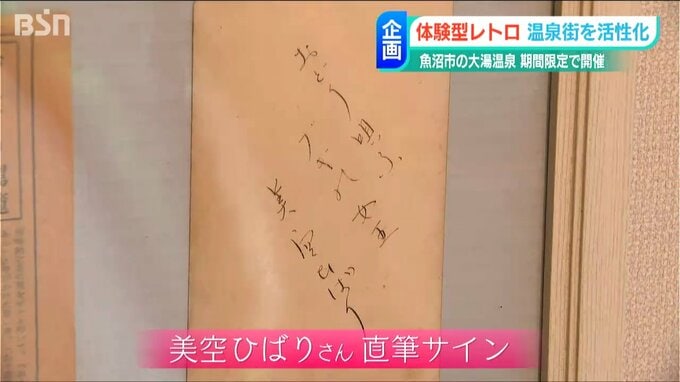 BSN
企画
体験型レトロ 温泉街を活性化
魚沼市の大湯温泉 期間限定で開催
おどり唄ふ
ブギの女王
美空ひばり
美空ひばりさん 直筆サイン